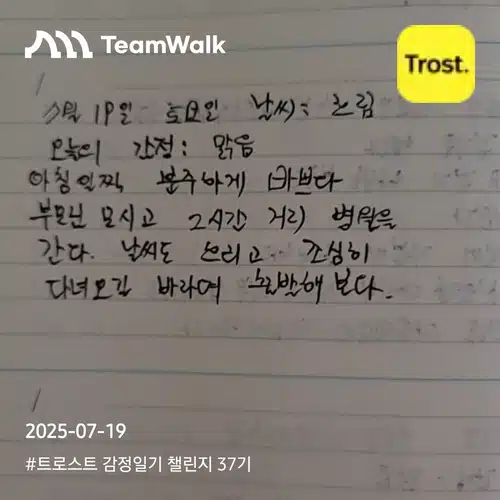 TeamWalk
Trost.
7월 19일 토요일 날씨: 흐림
오늘의 감정: 맑음
아침일찍 분주하게 바쁘다
부모님 모시고 2시간 거리 병원을
간다. 날씨도 흐리고 조심히
다녀오길 바라며 출발해 본다.
2025-07-19
#트로스트 감정일기 챌린지 37기